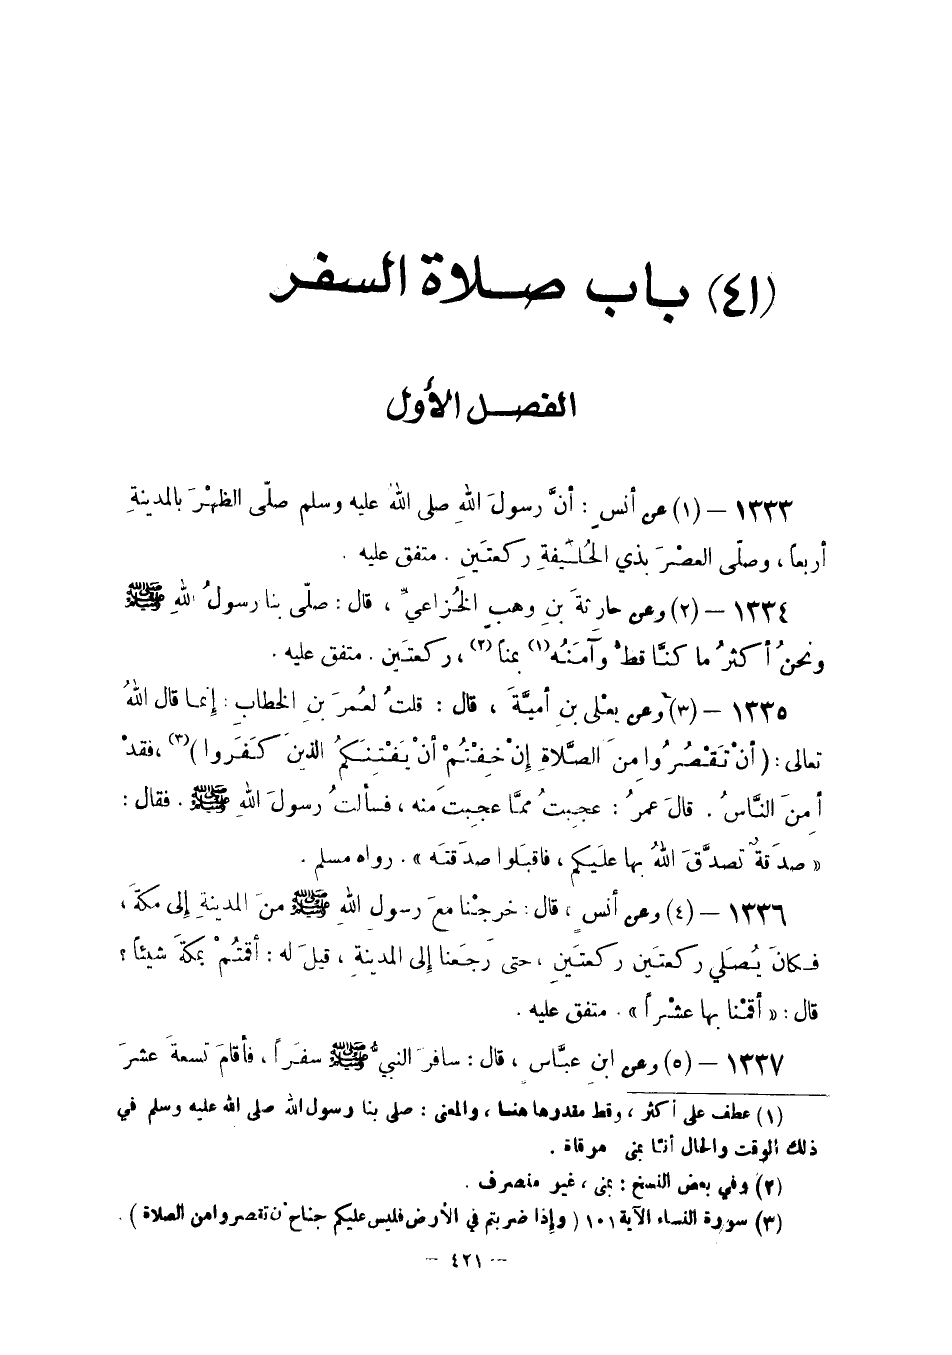 (٤١) باب صلاة السفر
الفصل الأول
١٣٣٣ – (١) عن أنسٍ : أنَّ رسولَ اللهِ صلى اللهُ عليه وسلم صلّى الظهْرَ بالمدينةِ
أربعاً ، وصلّى العصْرَ بذي الحُلَيْفةِ ركعتَينِ . متفق عليه .
١٣٣٤ – (٢) وعن حارثةَ بنِ وهبٍ الخُزاعيِّ ، قال : صلّى بنا رسولُ اللهِ ﷺ
ونحنُ أكثرُ ما كنَّا قطُّ وآمَنُه(١) بمناً(٢) ، ركعتَين . متفق عليه .
١٣٣٥ – (٣) وعن يعْلى بنِ أميَّةَ ، قال : قلتُ لعُمرَ بنِ الخطابِ : إنما قال اللهُ
تعالى : ( أنْ تَقْصُرُوا مِنَ الصَّلاةِ إنْ خِفْتُمْ أنْ يَفْتِنَكمُ الذينَ كَفَروا )(٣) ، فقدْ
أمِنَ النَّاسُ . قالَ عمرُ : عجِبتُ ممَّا عجِبتَ منه ، فسألتُ رسولَ اللهِ ﷺ . فقال :
« صدَقةٌ تصدَّقَ اللهُ بها علَيكم ، فاقبَلوا صدَقتَه » . رواه مسلم .
١٣٣٦ – (٤) وعن أنسٍ ، قال : خرجْنا معَ رسولِ اللهِ ﷺ منَ المدينةِ إلى مكةَ ،
فكانَ يُصلّي ركعتَين ركعتَينِ ، حتى رجَعنا إلى المدينةِ ، قيلَ له : أقمتُمْ بمكةَ شيئاً ؟
قال : « أقمْنا بها عشْراً » . متفق عليه .
١٣٣٧ – (٥) وعن ابنِ عبَّاسٍ ، قال : سافرَ النبيُّ ﷺ سفَراً ، فأقامَ تسعةَ عشرَ
(١) عطف على أكثر ، وقط مقدرها هنا ، والمعنى : صلى بنا رسول الله صلى الله عليه وسلم في
ذلك الوقت والحال أننا بمنى موقاة .
(٢) وفي بعض النسخ : بمنى ، غير منصرف .
(٣) سورة النساء الآية ١٠١ ( وإذا ضربتم في الأرض فليس عليكم جناح أن تقصروا من الصلاة ) .
– ٤٢١ –